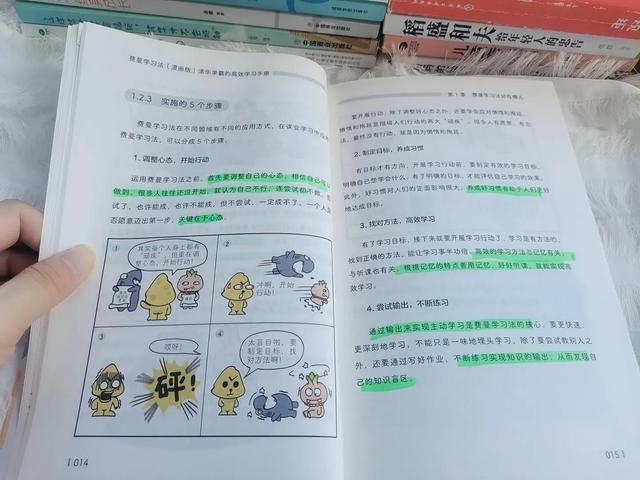 中国商业出版社
稻盛和夫给年轻人的忠告
费曼学习法（漫画版）清华学霸的高效学习手册
1.2.3 实施的5个步骤
费曼学习法在不同领域有不同的应用方式，在课业学习中应用
费曼学习法，可以分成5个步骤。
1. 调整心态，开始行动
运用费曼学习法之前，首先要调整自己的心态，相信自己可以
做到。很多人往往还没开始，就认为自己不行，连尝试都不敢。尝
试了，也许能成，也许不能成，但不尝试，一定成不了。一个人是
否愿意迈出第一步，关键在于心态。
①
其实每个人身上都有
“顽疾”，但重在调
整心态，开始行动！
②
冲啊，开始
行动！
③
哎呀！
砰！
④
太盲目啦，要
制定目标，找
对方法啊！
014
第1章 费曼学习法好在哪儿
要开展行动，除了调整好心态之外，还要学会应对惰性和拖延。
惰性和拖延是阻碍人们行动的两大“顽疾”，很多人有愿景，有想
法，最终没有行动，就是因为惰性和拖延。
2. 制定目标，养成习惯
有目标才有方向，开展学习行动之前，要制定有效的学习目标，
明确自己想学会什么，有了明确的目标，才能评估自己学习的效果。
此外，好习惯对人们的正面影响很大，养成好习惯有助于人们更好
地达成目标。
3. 找对方法，高效学习
有了学习目标，接下来就要开展学习行动了，学习是有方法的，
找到正确的方法，能让学习事半功倍。高效的学习方法与记忆有关，
与听课也有关。根据记忆的特点善用记忆，好好听课，就能实现高
效学习。
4. 尝试输出，不断练习
通过输出来实现主动学习是费曼学习法的核心，要更快速、
更深刻地学习，不能只是一味地埋头学习，除了要尝试教别人之
外，还要通过写好作业，不断练习实现知识的输出，从而发现自
己的知识盲区。
015